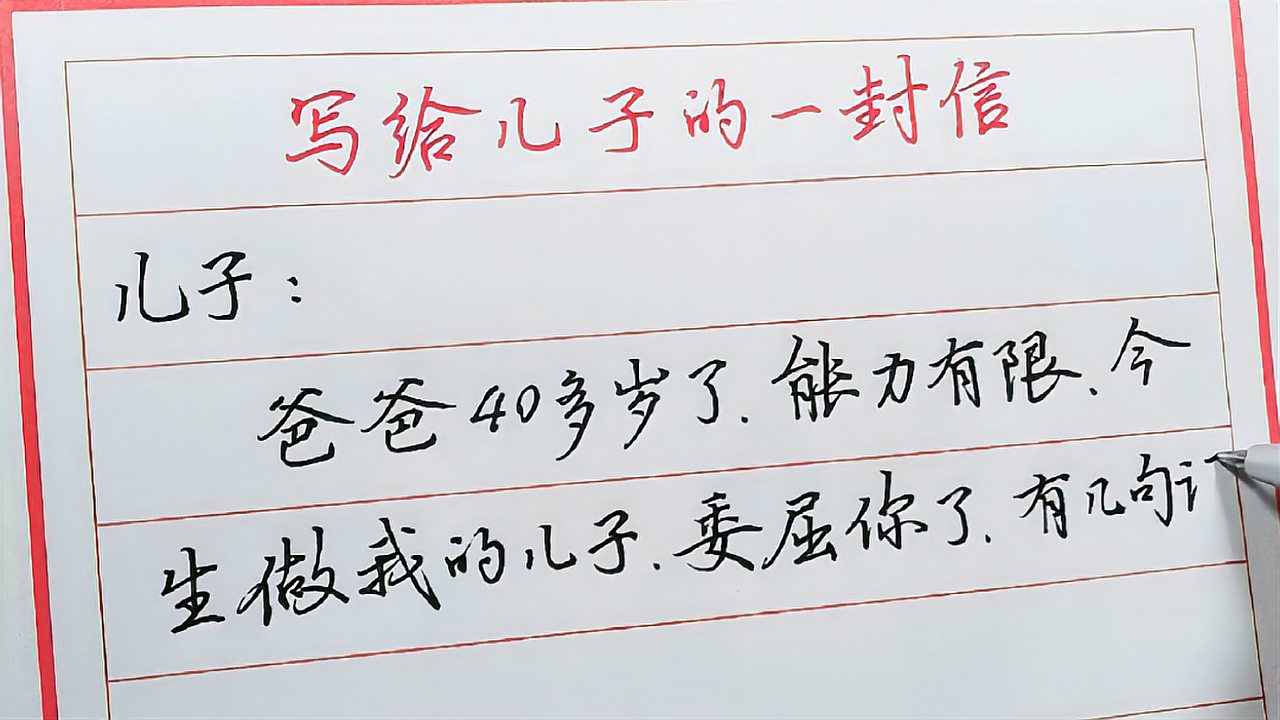 写给儿子的一封信
儿子：
爸爸40多岁了.能力有限、今
生做我的儿子、委屈你了.有几句